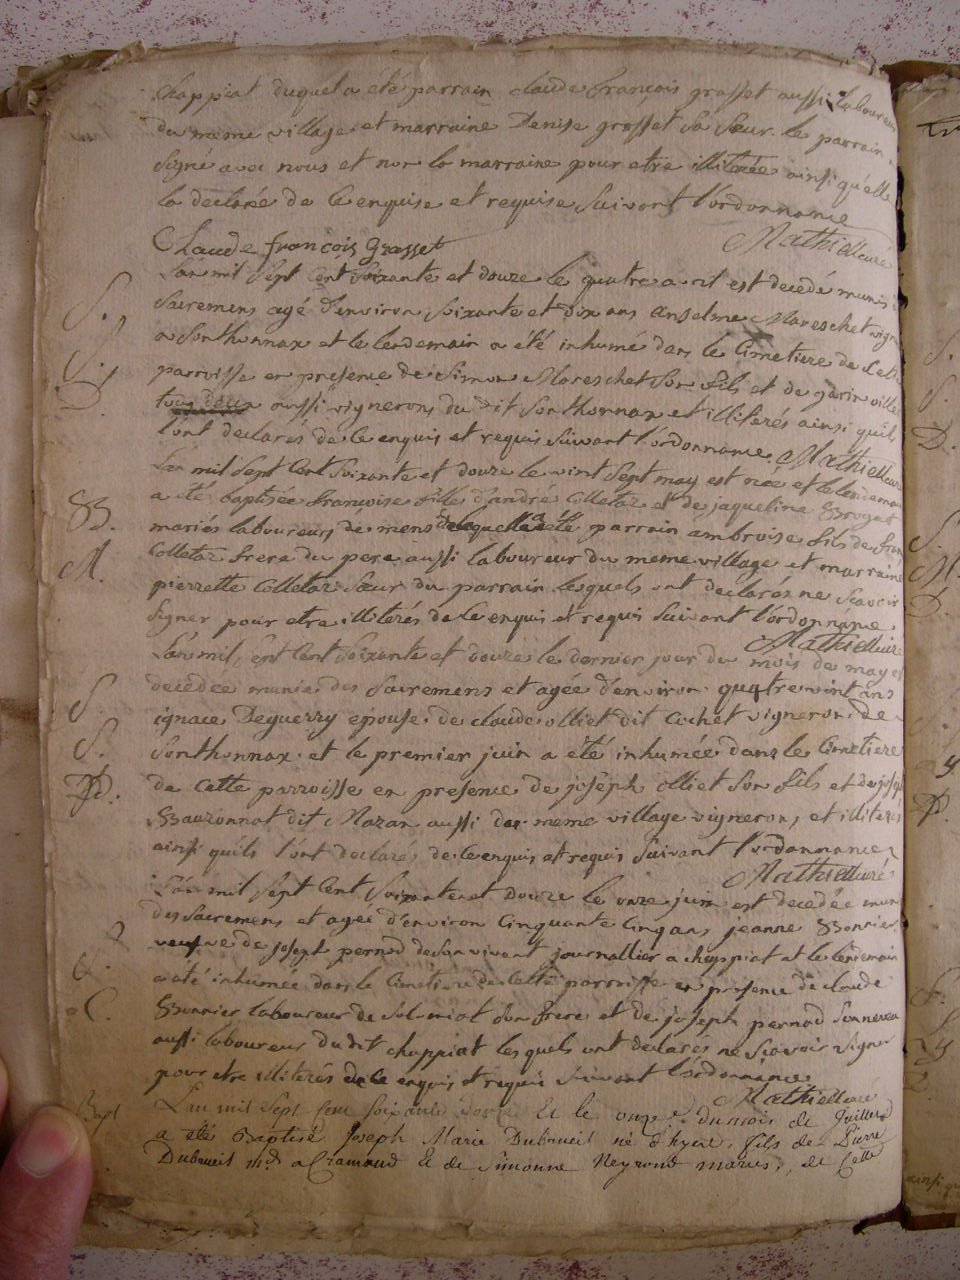 chappiat duquel a été parrain claude françois grosset aussi laboureur
du meme village et marraine Denise grosset sa sœur le parrain a
signé avec nous et non la marraine pour etre illiterée ainsi qu'elle
la declarée de ce enquise et requise suivant l'ordonnance
Claude françois Grosset Mathieu curé
L'an mil sept cent soixante et douze le quatre avril est decedé munis
S. sacremens agé d'environ soixante et dix ans anselme Mareschet vign
a Sonthonnax et le lendemain a été inhumé dans le Cimetiere de cette
S. parroisse en presence de Simon Mareschet son fils et de
D. tous deux aussi vignerons du dit Sonthonnax et illiterés ainsi qu'il
l'ont declarés de ce enquis et requis suivant l'ordonnance Mathieu curé
L'an mil sept cent soixante et douze le vint sept may est née et le lendemain
a été baptisée françoise fille d'andré Colletaz et de jaqueline
B. mariés laboureurs de mens de laquelle a été parrain ambroise fils de
M. Colletaz frere du pere aussi laboureur du meme village et marraine
pierrette Colletaz sœur du parrain lesquels ont declarés ne scavoir
signer pour etre illiterés de ce enquis et requis suivant l'ordonnance
Mathieu curé
L'an mil sept cent soixante et douze le dernier jour du mois de may est
decedée munie des sacremens et agée d'environ quatre vint ans
S. ignace Deguerry epouse de claude olliet dit Cochet vigneron de
S. Sonthonnax et le premier juin a été inhumée dans le Cimetiere
D. de cette parroisse en presence de joseph olliet son fils et de joseph
Bauzonnat dit Mazan aussi du meme village vignerons et illiterés
ainsi quils l'ont declarés de ce enquis et requis suivant l'ordonnance
Mathieu curé
L'an mil sept cent soixante et douze le onze juin est decedée munie
des sacremens et agée d'environ cinquante cinq ans jeanne Bonnier
veufve de joseph pernod de son vivant journallier a chappiat et le lendemain
a été inhumée dans le Cimetiere de cette parroisse en presence de claude
C. Bonnier laboureur de Sol miat son frere et de joseph pernod son neveu
aussi laboureur dudit chappiat lesquels ont declarés ne scavoir signer
pour etre illiterés de ce enquis et requis suivant l'ordonnance
Mathieu curé
Bapt L'an mil sept cent soixante douze Et le onze du mois de Juillet
a été Baptisé Joseph Marie Dubreuil né d'hyer, fils de Pierre
Dubreuil md a Cramand Et de Simonne Neyrond mariés, de Cette